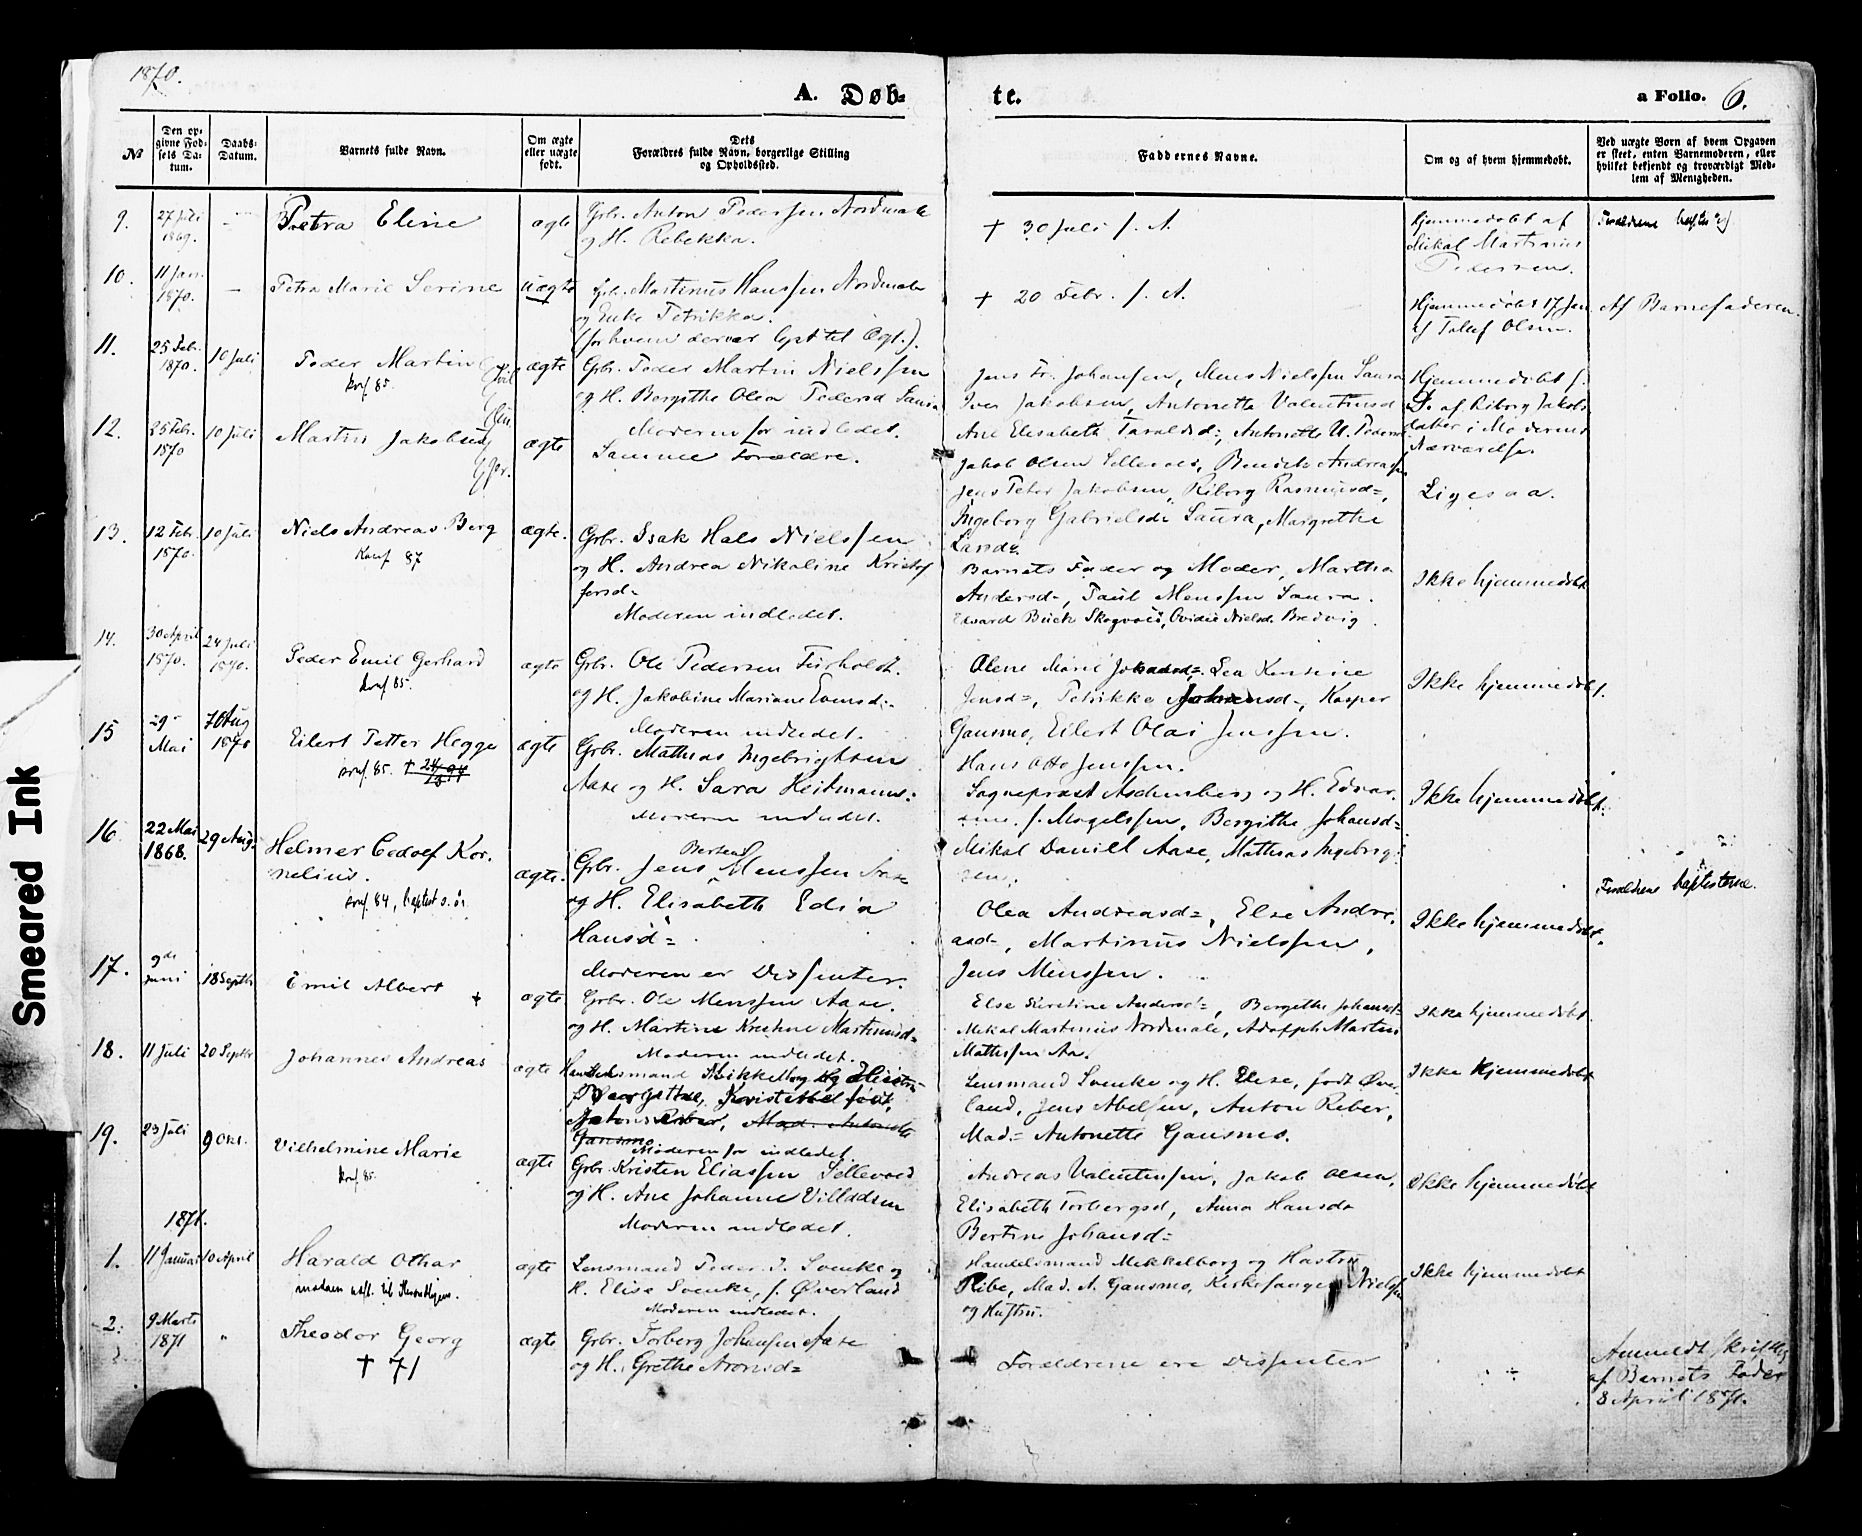 1870.
A. Døb-
te.
a Folio. 6.
№
Den op-
givne Fød-
sels Da-
tum.
Daabs-
Datum.
Barnets fulde Navn.
Om ægte
eller uægte
født.
Dets
Forældres fulde Navn, borgerlige Stilling
og Opholdssted.
Faddernes Navne.
Om og af hvem hjemmedøbt.
Ved uægte Børn af hvem Opgaven
er skeet, enten Barnemoderen, eller
hvilket bekjendt og troværdigt Med-
lem af Menigheden.
9.
27 Juli
1869.
Petra Eline
ægte
Grbr. Anton Pederssen Nordmale
og H. Rebekka.
† 30 Juli s. A.
Hjemmedøbt af
Mikal Martinius
Pedersen.
Forældrene
10.
11 Jan.
1870.
Petra Marie Serine
uægte
Martinus Hanssen Nordmale
og Enke Petrikka.
(for hvem der var lyst til Ægt.).
† 20 Febr. s. A.
Hjemmedøbt 17 Jan
af Toluf Olsen.
Af Barnefaderen.
11.
25 Feb.
1870.
10 Juli
Peder Martin
konf. 85.
ægte
Grbr. Peder Martin Nielssen
og H. Bergithe Olea Pedersd Saura
Moderen indledet.
Jens Fr. Johansen, Mens Nielssen Saura
Iver Jakobsen, Antonette Valentinsd
Ane Elisabeth Taraldsd=, Antonette U. Pedersd
Hjemmedøbt s.
D. af Riborg Jakobs
datter i Moderens
Nærværelse.
12.
25 Feb.
1870
10 Juli
Martin Jakobsen
ægte
Samme Forældre.
Jakob Olsen Sellevold, Benedikte Andreassen
Jens Peter Jakobsen, Riborg Rasmusd=,
Ingeborg Gabrielsd= Saura, Margrethe
Larsd=
Ligesaa.
13.
12 Febr.
1870.
10 Juli
Niels Andreas Berg
Konf 87
ægte.
Grbr. Isak Hals Nielssen
og H. Andrea Nikoline Kristof
fersd=
Moderen indledet.
Barnets Fader og Moder, Martha
Andersd=, Paul Menssen Saura.
Edvard Buck Skogvold, Ovidie Nielsd= Bredvig.
Ikke hjemmedøbt
14.
30 April
1870.
24 Juli
1870.
Peder Emil Gerhard
Konf 85.
ægte
Grbr. Ole Pedersen Furholdt.
og H. Jakobine Mariane Evensd=
Moderen indledet.
Olene Marie Johansd=. Lea Kersine
Jensd=, Petrikke Johansd=, Kasper
Gausmo, Eilert Olai Jenssen.
Hans Otto Jenssen.
Ikke hjemmedøbt.
15
29
Mai
7 Aug
1870
Eilert Petter Hegge
konf. 85.
ægte
Grbr. Mathias Ingebrigtsen
Aase og H. Sara Heitmann:
Moderen indledet.
Sogneprest Aschenberg og H. Edvar-
sine. f. Mogelssen, Bergithe Johansd=
Mikal Daniel Aase, Mathias Ingebrigt-
sen.
Ikke hjemmedøbt.
16
22 Mai
1868.
29 Aug.
Helmer Cedolf Kor-
nelius.
konf. 84, baptist s. år
ægte.
Grbr. Jens Berteus Menssen Aase
og H. Elisabeth Edia
Hansd=
Moderen er Dissenter.
Olea Andreasd=, Else Andre-
asd=, Martinus Nielssen,
Jens Menssen.
Ikke hjemmedøbt.
Forældrene baptisterne.
17.
9de
Juni
18 Septbr
Emil Albert †
ægte
Grbr. Ole Menssen Aase.
og H. Martine Martinusd=
Moderen indledet.
Else Andersd=, Bergithe Johansd=
Mikal Martinus Nordmale, Adolph Martin
Mathissen Aa.
Ikke hjemmedøbt.
18.
11 Juli
20 Septbr
Johannes Andreas
ægte
Moderen indledet
Lensmand Svenke og H. Elise, født Øver-
land, Jens Abelsen, Anton Reber,
Mad= Antonette Gausmo.
Ikke hjemmedøbt
19.
23 Juli
9 Okt.
Vilhelmine Marie
konf 85.
ægte
Grbr. Kristen Eliassen Sellevold
og H. Ane Johanne Villadsen
Moderen indledet.
Andreas Valentinsen, Jakob Olsen,
Elisabeth Torbergsd, Anna Hansd=
Bertine Johansd=
Ikke hjemmedøbt
1871.
1.
11 Januar
10 April
Harald Othar
ægte
Lensmand Peder I. Svenke og
H. Elise Svenke, f. Øverland
Moderen indledet.
Handelsmand Mekkelborg og Hustru
Ribe, Mad. A. Gausmo, Kirkesanger Nielsen
og Hustru.
Ikke hjemmedøbt
2.
9 Marts
1871
"
Theodor Georg
† 71
ægte
Grbr. Torberg Johanssen Aase
og H. Grethe Aronsd=
Forældrene ere Dissenter
÷
Anmeldt skriftlig
af Barnets Fader
8 April 1871.
Smeared Ink